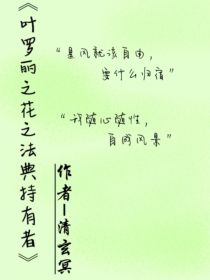 《叶罗丽之花之法典持有者》
“暴风就该自由，
要什么归宿”
“我随心随性，
自成风景”
作者—清玄冥